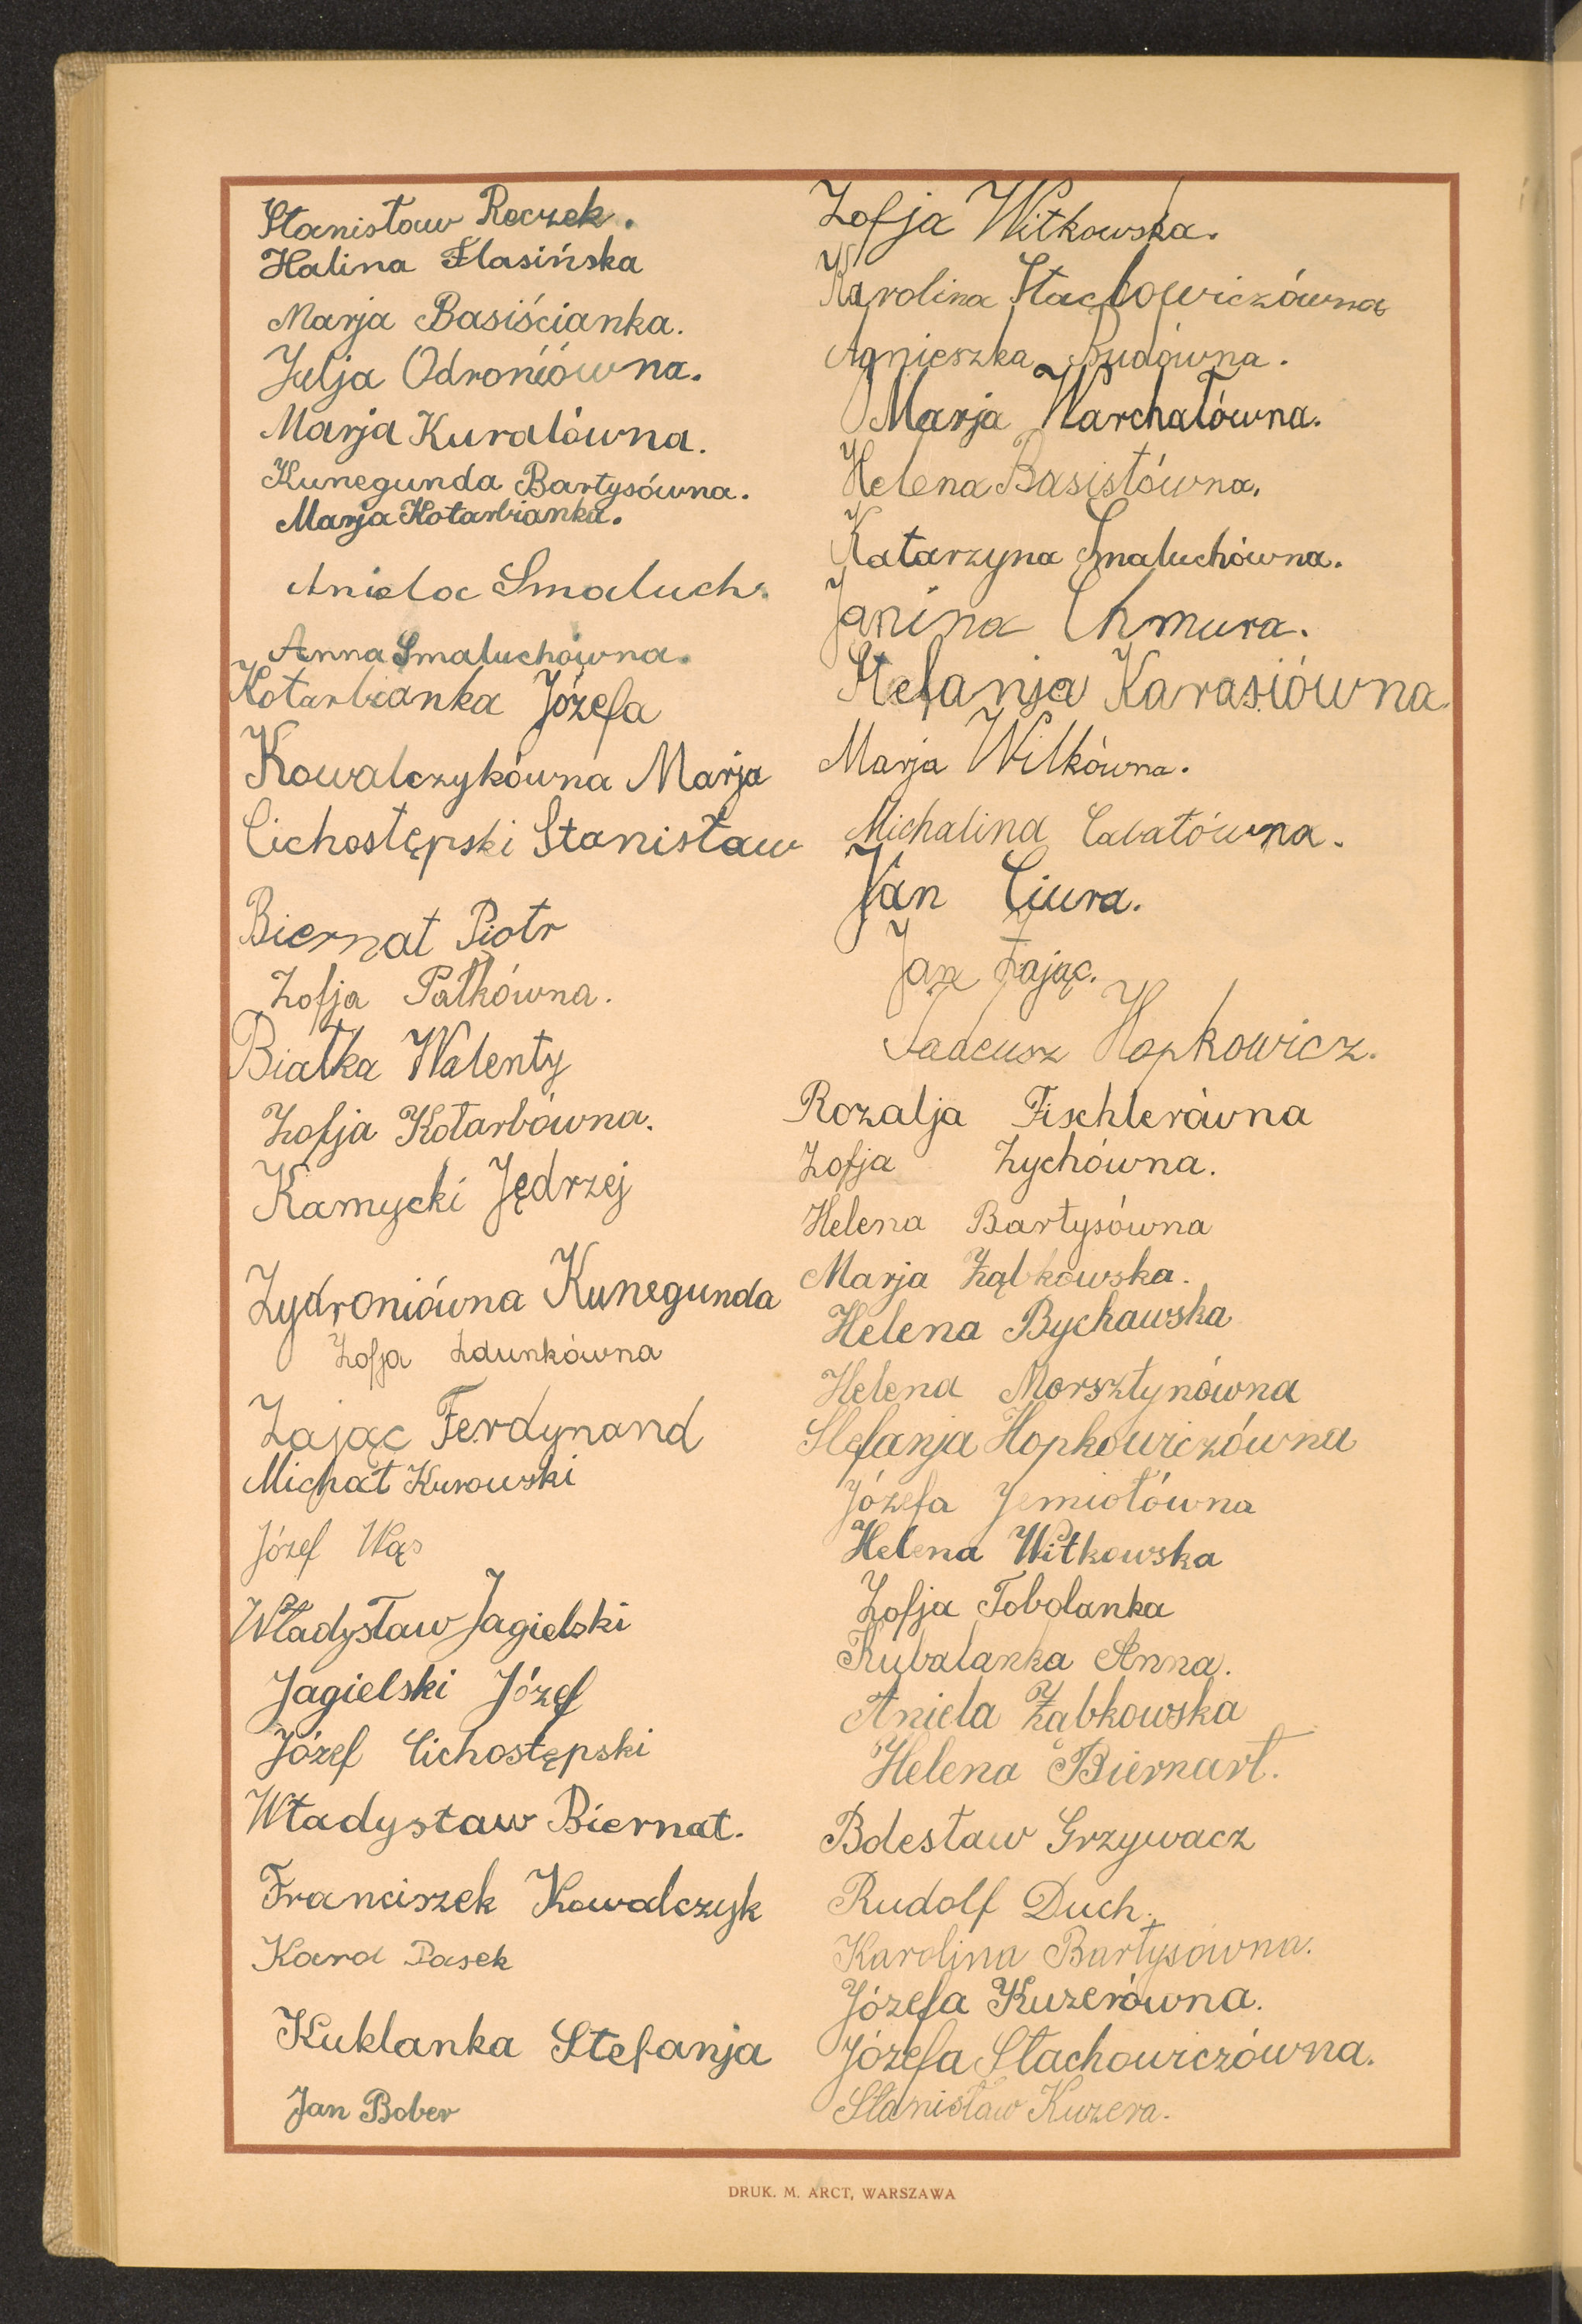 Stanisław Roczek.
Halina Flasińska
Marja Basiścianka.
Julja Odroniówna.
Marja Kuralówna.
Kunegunda Bartysówna.
Marja Kotarbianka.
Aniela Smaluch.
Anna Smaluchówna.
Kotarbianka Józefa
Kowalczykówna Marja
Cichostępski Stanisław
Biernat Piotr
Zofja Pałkówna.
Białka Walenty
Zofja Kotarbówna.
Kamycki Jędrzej
Zydroniówna Kunegunda
Zofja Zdunkówna
Zając Ferdynand
Michał Kurowski
Józef Wąs
Władysław Jagielski
Jagielski Józef
Józef Cichostępski
Władysław Biernat.
Franciszek Kowalczyk
Karol Pasek
Kuklanka Stefanja
Jan Bober
Zofja Witkowska.
Karolina Stachowiczówna
Agnieszka Dudówna.
Marja Warchałówna.
Helena Basistówna.
Katarzyna Smaluchówna.
Janina Chmura.
Stefanja Karasiówna.
Marja Wilkówna.
Michalina Cabatówna.
Jan Ciura.
Jan Zając.
Tadeusz Hopkowicz.
Rozalja Fischlerówna
Zofja Zychówna.
Helena Bartysówna
Marja Ząbkowska.
Helena Bychawska
Helena Morsztynówna
Stefanja Hopkowiczówna
Józefa Jemiołówna
Helena Witkowska
Zofja Tobolanka
Kubalanka Anna.
Aniela Ząbkowska
Helena Biernart.
Bolesław Grzywacz
Rudolf Duch.
Karolina Bartysówna.
Józefa Kuzerówna.
Józefa Stachowiczówna.
Stanisław Kuzera.
DRUK. M. ARCT, WARSZAWA